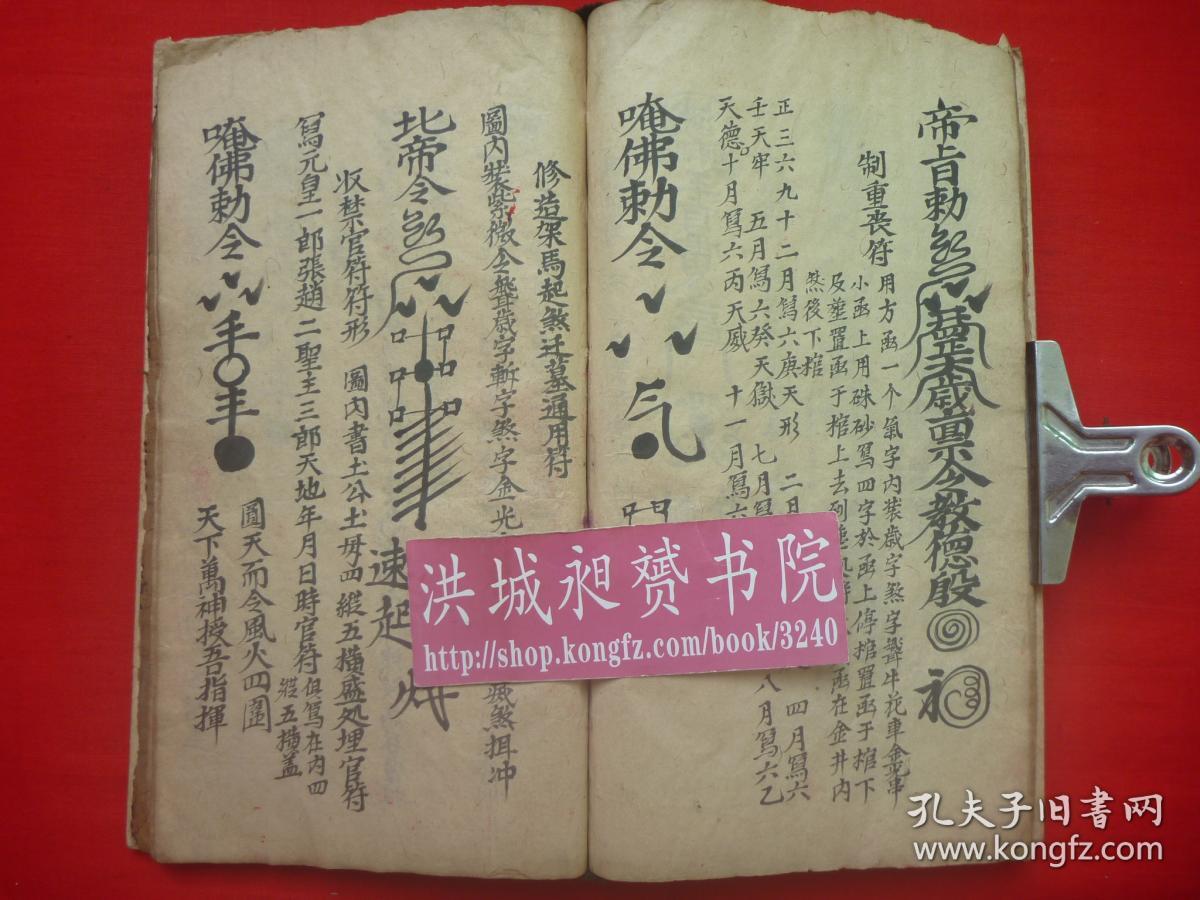 帝旨勅
歲
令教德殷
制重丧符
用方函一个氣字内裝歲字煞字聻牛花車金光串
小函上用硃砂寫四字於函上停棺置函于棺下
及塟置函于棺上去
函在金井内
然後下棺
正三六九十二月寫六庚天形 二月
四月寫六
壬天牢 五月寫六癸天獄 七月寫
八月寫六乙
天德 十月寫六丙天威 十一月寫六
唵佛勅令
修造架馬起煞迁墓通用符
圖内裝紫微令聻歲字斬字煞字金光
煞揖冲
北帝令
速起
收禁官符符形 圖内書土公土母四縱五横盛処埋官符
寫元皇一郎張趙二聖主三郎天地年月日時官符
俱寫在内四
縱五横盖
唵佛勅令
圓天而令風火四圍
天下萬神授吾指揮
洪城昶赟书院
http://shop.kongfz.com/book/3240
孔夫子旧书网
www.kongfz.com